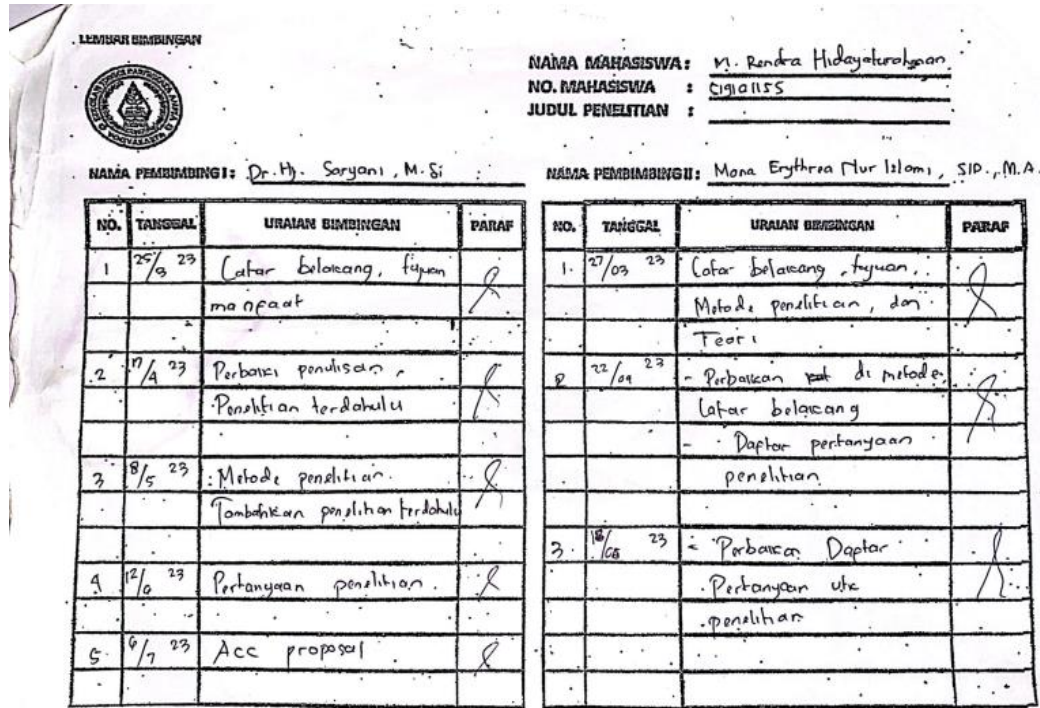 LEMBAR BIMBINGAN
NAMA MAHASISWA : M. Rendra Hidayaturohman
NO. MAHASISWA : C19101155
JUDUL PENELITIAN :
NAMA PEMBIMBING I : Dr. Hj. Soryani, M.Si
NO. TANGGAL URAIAN BIMBINGAN PARAF
1 25/3 23 Latar belakang, tujuan
manfaat
2 17/4 23 Perbaiki penulisan,
Penelitian terdahulu
3 8/5 23 Metode penelitian
Tambahkan penelitian terdahulu
4 12/6 23 Pertanyaan penelitian
5 6/7 23 Acc proposal
NAMA PEMBIMBING II : Mona Erythrea Nur Islami, SIP., M.A.
NO. TANGGAL URAIAN BIMBINGAN PARAF
1. 27/03 23 Latar belakang, tujuan,
Metode penelitian, dan
Teori
2 22/04 23 - Perbaikan di metode,
latar belakang
- Daftar pertanyaan
penelitian
3. 23 - Perbaikan Daftar
Pertanyaan utk
penelitian